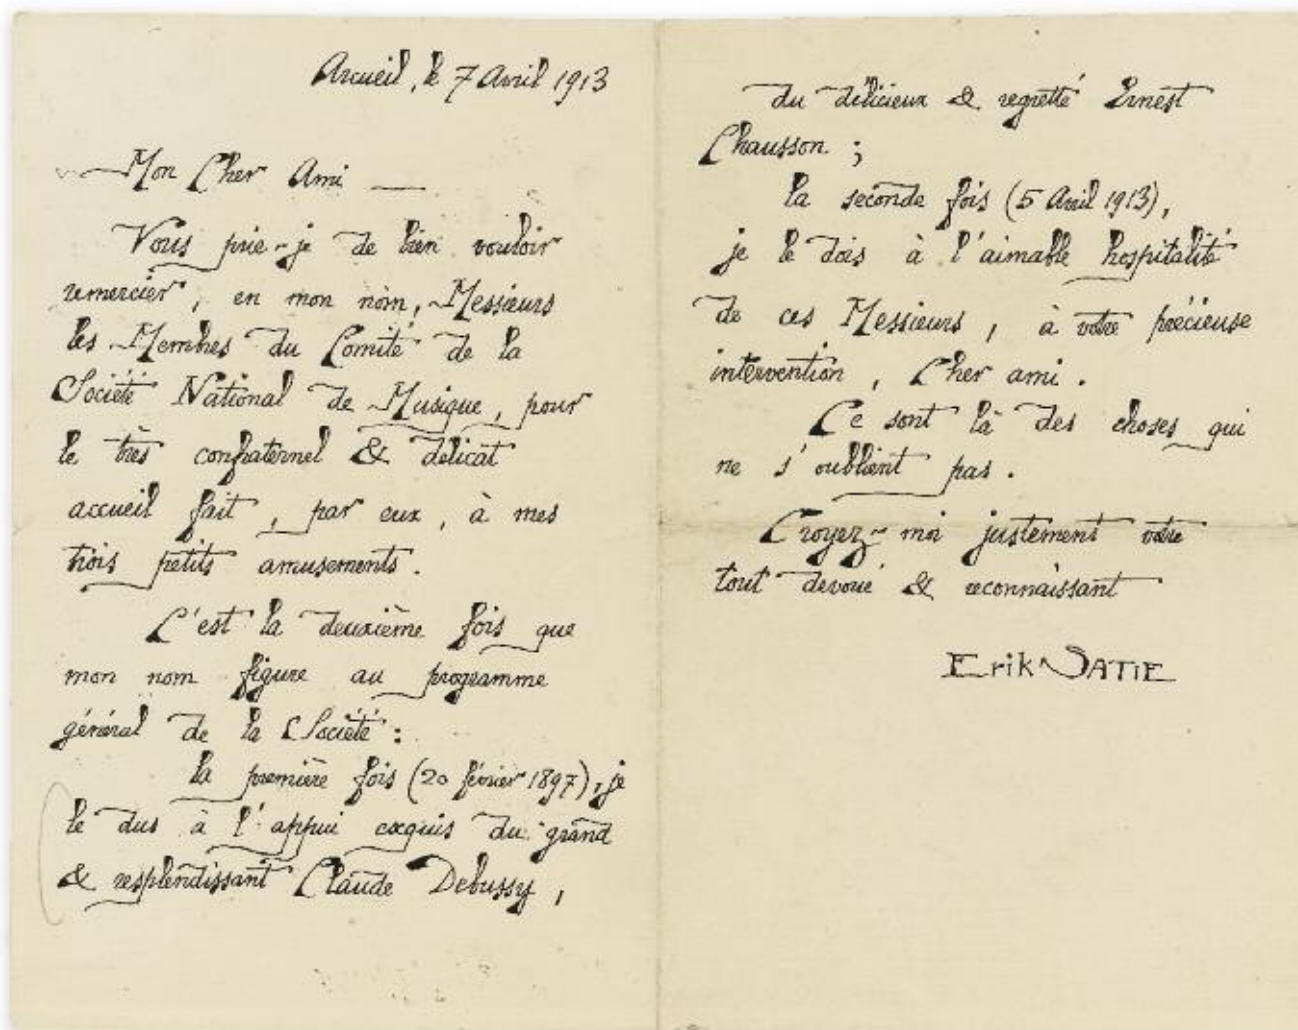 Arcueil, le 7 Avril 1913
Mon Cher Ami —
Vous prie-je de bien vouloir
remercier, en mon nom, Messieurs
les Membres du Comité de la
Société National de Musique, pour
le très confraternel & délicat
accueil fait, par eux, à mes
trois petits amusements.
C'est la deuxième fois que
mon nom figure au programme
général de la Société :
la première fois (20 février 1897), je
le dus à l'appui exquis du grand
& resplendissant Claude Debussy,
du délicieux & regretté Ernest
Chausson ;
la seconde fois (5 Avril 1913),
je le dois à l'aimable hospitalité
de ces Messieurs, à votre précieuse
intervention, Cher ami.
Ce sont là des choses qui
ne s'oublient pas.
Croyez-moi justement votre
tout dévoué & reconnaissant
Erik SATIE